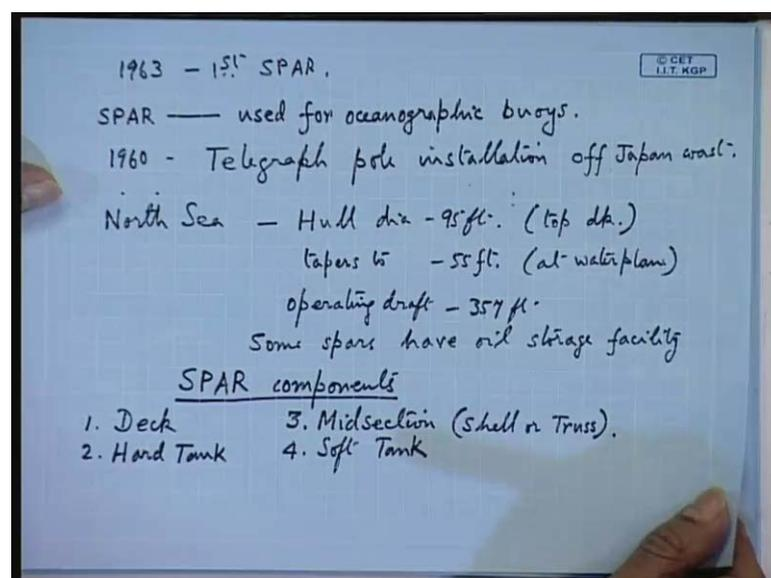 1963 - 1st SPAR.
© CET
I.I.T. KGP
SPAR —— used for oceanographic buoys.
1960 - Telegraph pole installation off Japan coast.
North Sea - Hull dia - 95 ft. (top dk.)
tapers to - 55 ft. (at waterplane)
operating draft - 357 ft.
Some spars have oil storage facility
SPAR components
1. Deck 3. Midsection (Shell or Truss).
2. Hard Tank 4. Soft Tank